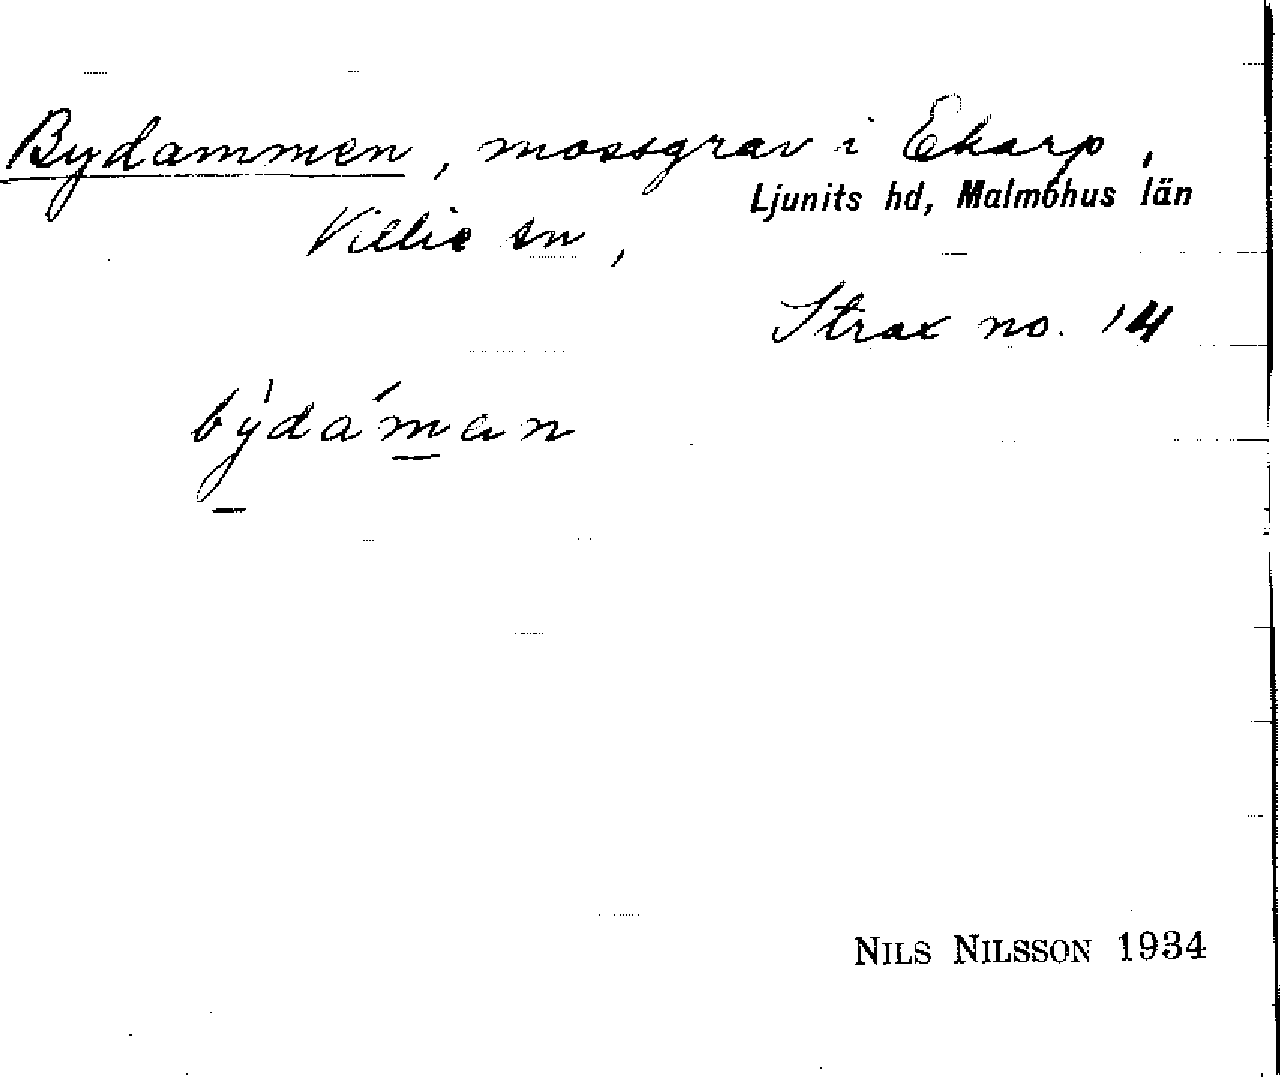 Bydammen, mossgrav i Ekarp,
Ljunits hd, Malmöhus län
Villie sn,
Strax no. 14
býdáman
NILS NILSSON 1934